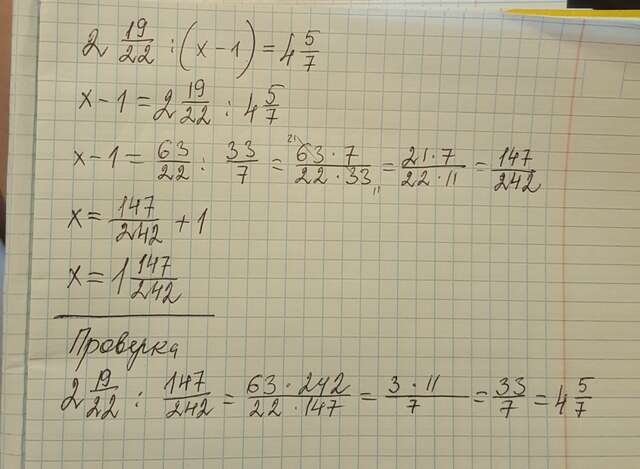 2 19/22 : (x - 1) = 4 5/7
x - 1 = 2 19/22 : 4 5/7
x - 1 = 63/22 : 33/7 = 63 · 7/22 · 33 = 21 · 7/22 · 11 = 147/242
x = 147/242 + 1
x = 1 147/242
Проверка
2 19/22 : 147/242 = 63 · 242/22 · 147 = 3 · 11/7 = 33/7 = 4 5/7